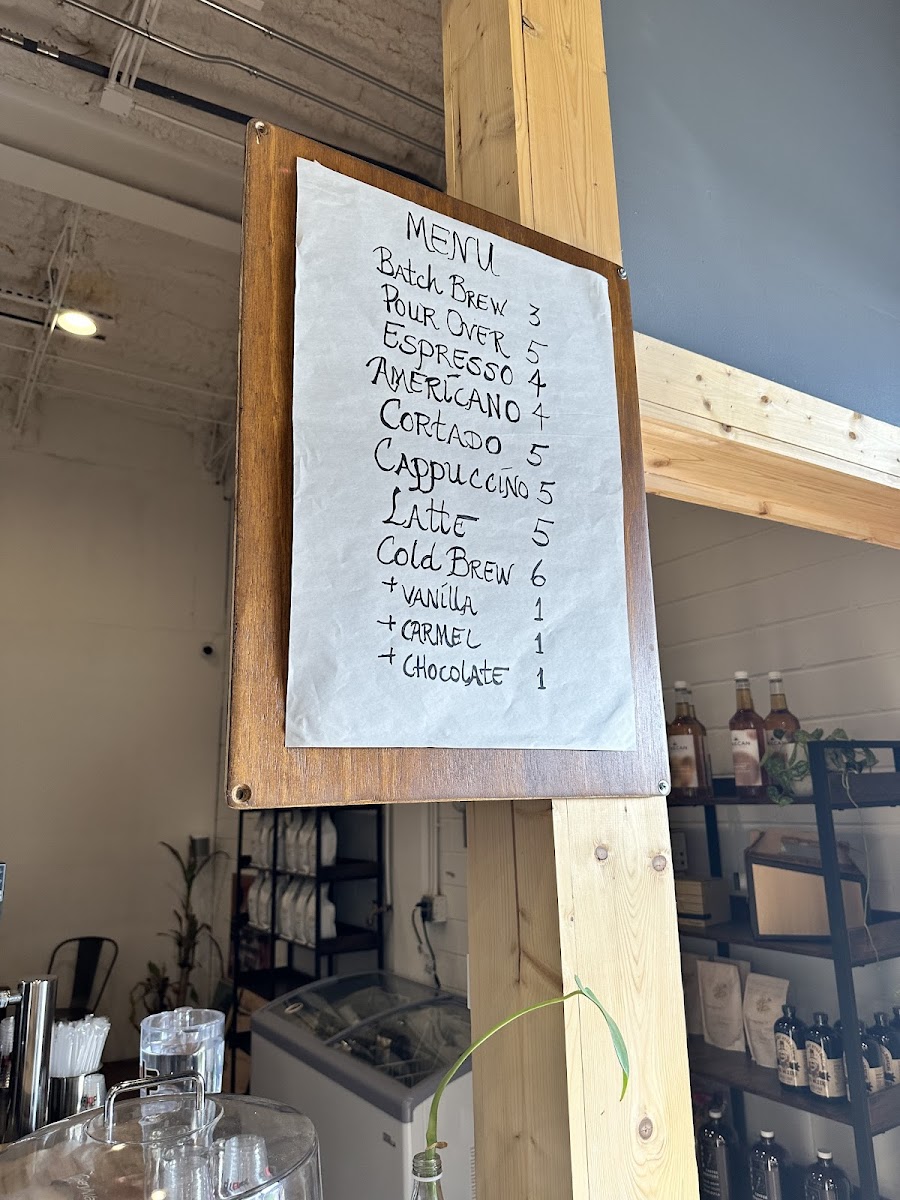 MENU
Batch Brew 3
Pour Over 5
Espresso 4
Americano 4
Cortado 5
Cappuccino 5
Latte 5
Cold Brew 6
+ Vanilla 1
+ Carmel 1
+ Chocolate 1